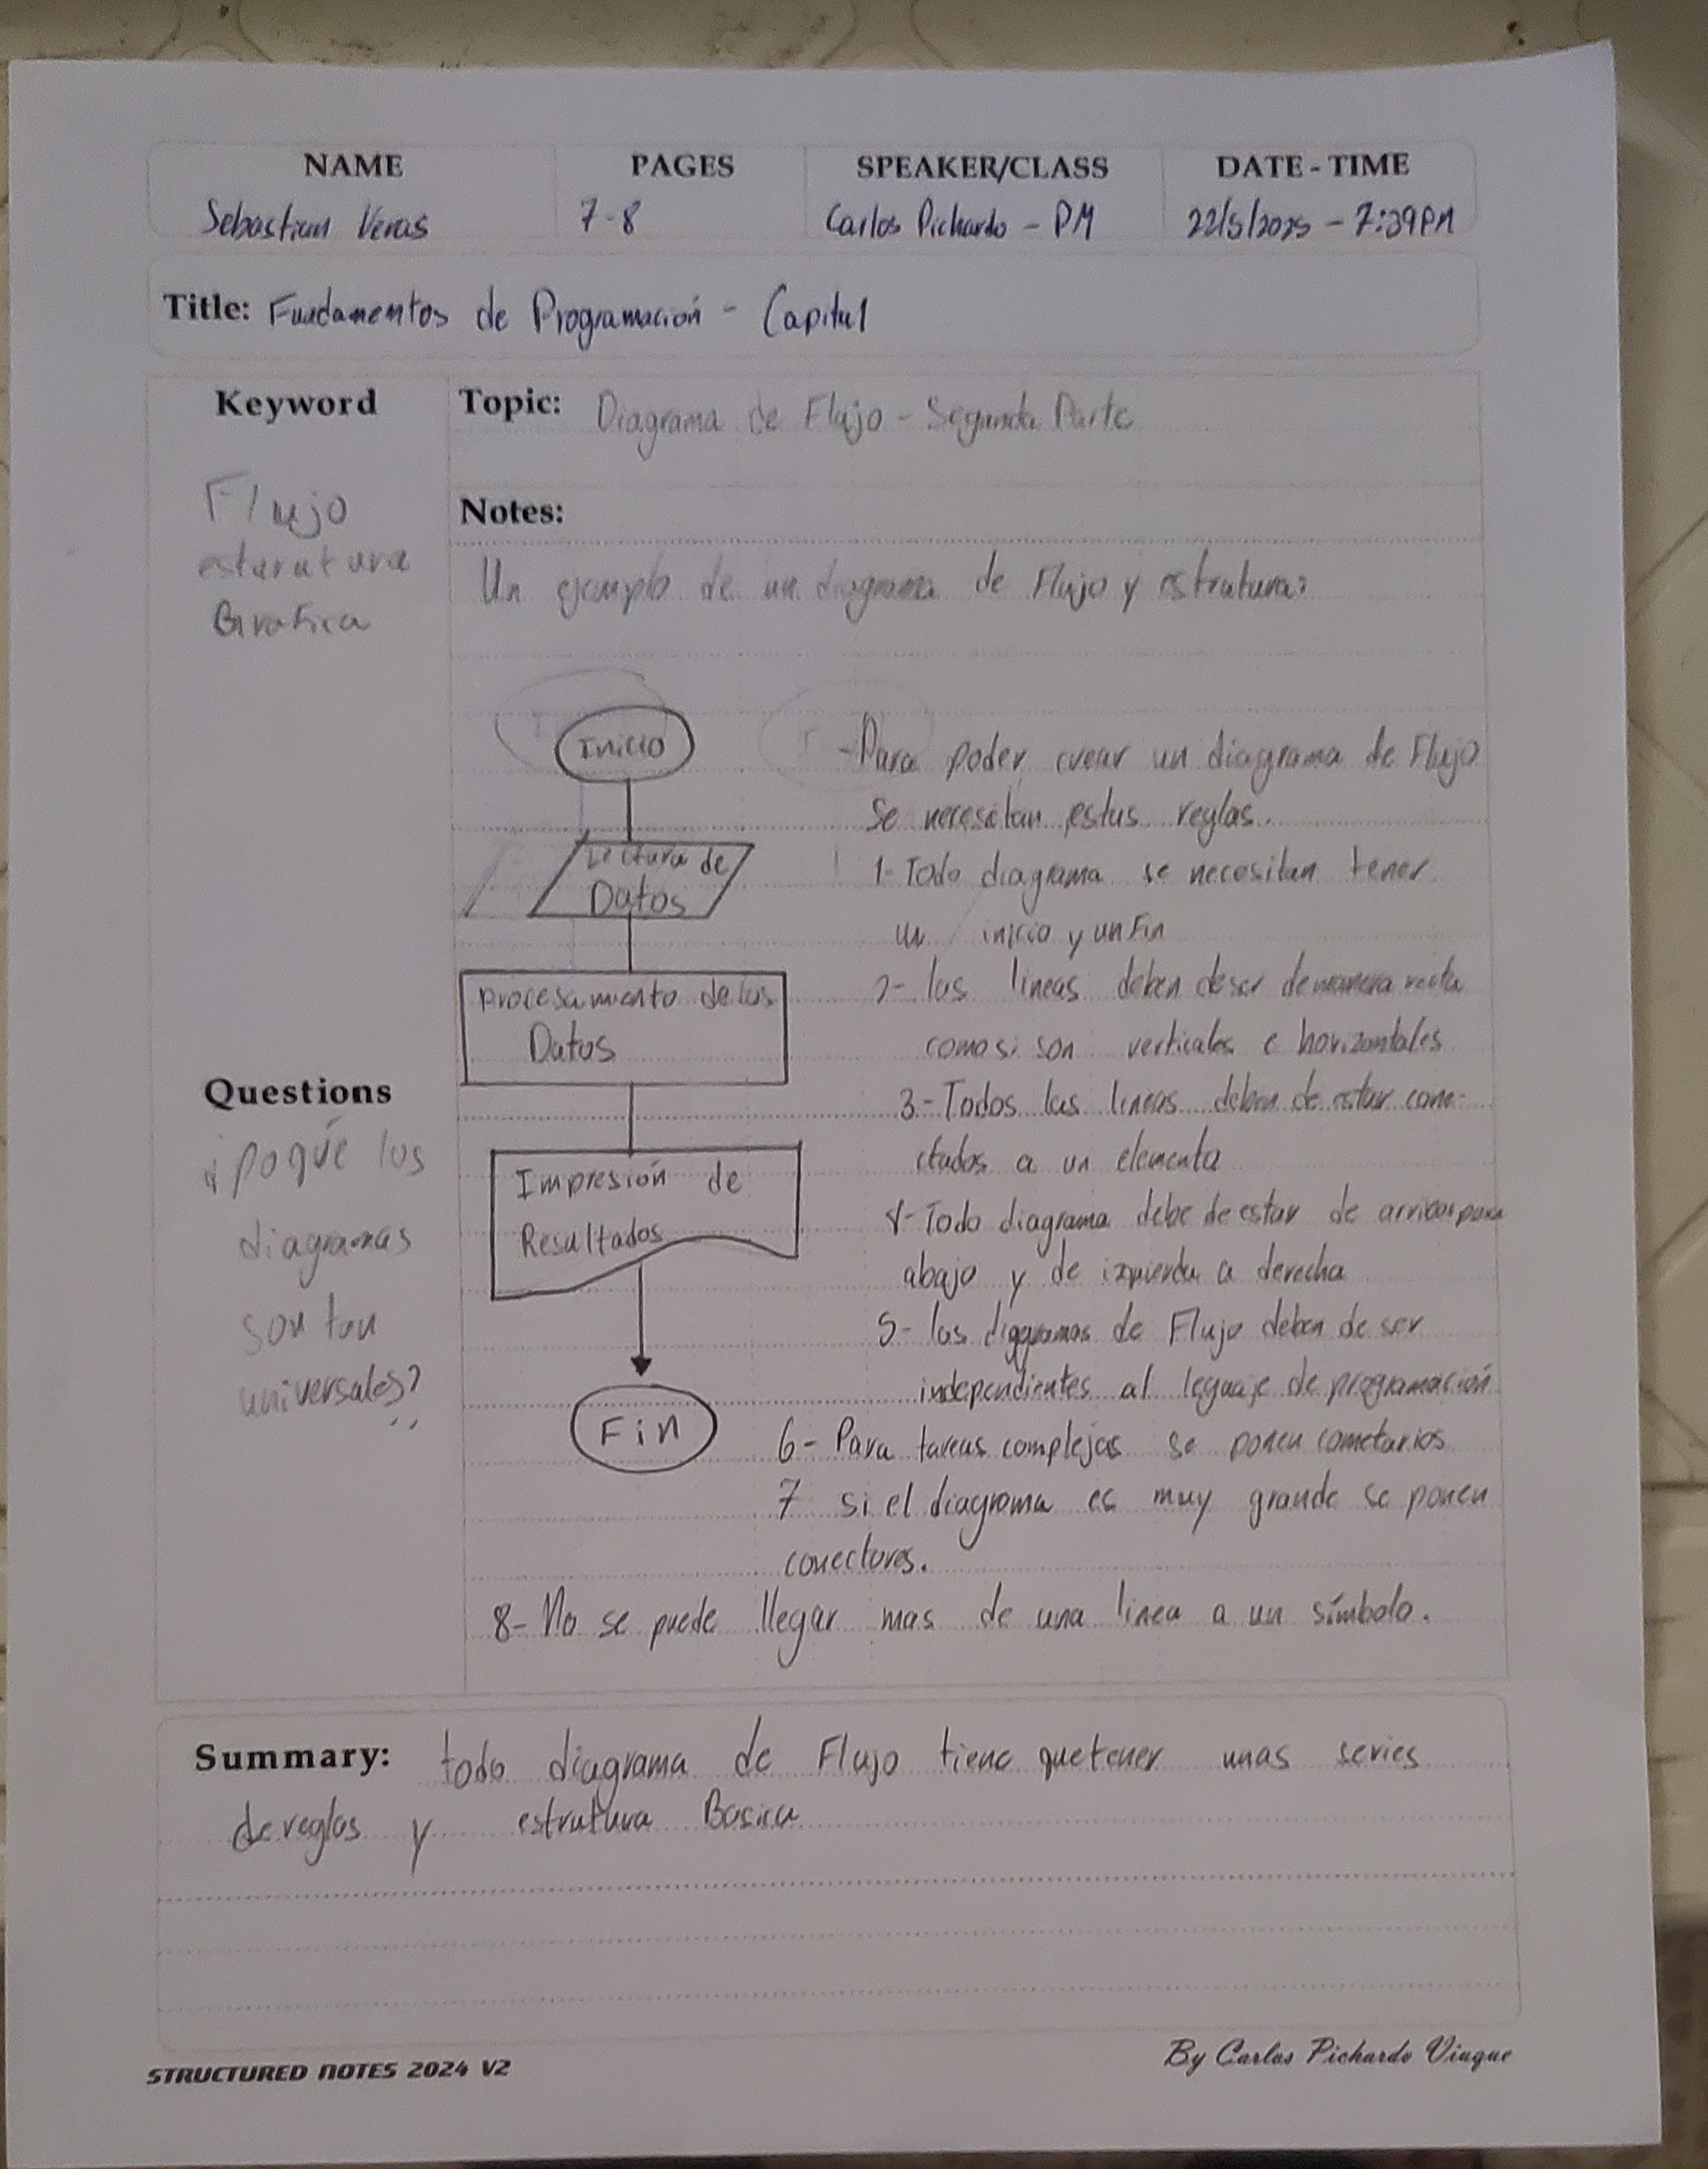 NAME PAGES SPEAKER/CLASS DATE - TIME
Sebastian Veras 7-8 Carlos Pichardo - PM 22/5/2025 - 7:39PM
Title: Fundamentos de Programación - Capitul
Keyword
Flujo
esturutura
Grafica
Topic: Diagrama de Flujo - Segunda Parte
Notes:
Un ejemplo de un diagrama de Flujo y estrutura:
Inicio
Lectura de
Datos
Procesamiento de los
Datos
Impresión de
Resultados
Fin
-Para poder crear un diagrama de Flujo
Se necesitan estas reglas.
1- Todo diagrama se necesitan tener
un inicio y un Fin
2- las lineas deben de ser de manera recta
como si son verticales e horizontales
3- Todos las lineas deben de estar cone-
ctados a un elemento
4- Todo diagrama debe de estar de arribas para
abajo y de izquierda a derecha
5- los digramas de Flujo deben de ser
independientes al leguaje de programación
6- Para tareas complejas se ponen cometarios
7 si el diagrama es muy grande se ponen
conectores.
8- No se puede llegar mas de una linea a un símbolo.
Questions
¿poqué los
diagramas
son tan
universales?
Summary: todo diagrama de Flujo tiene que tener unas series
de reglas y estrutura Basica
STRUCTURED NOTES 2024 V2
By Carlos Pichardo Viuque